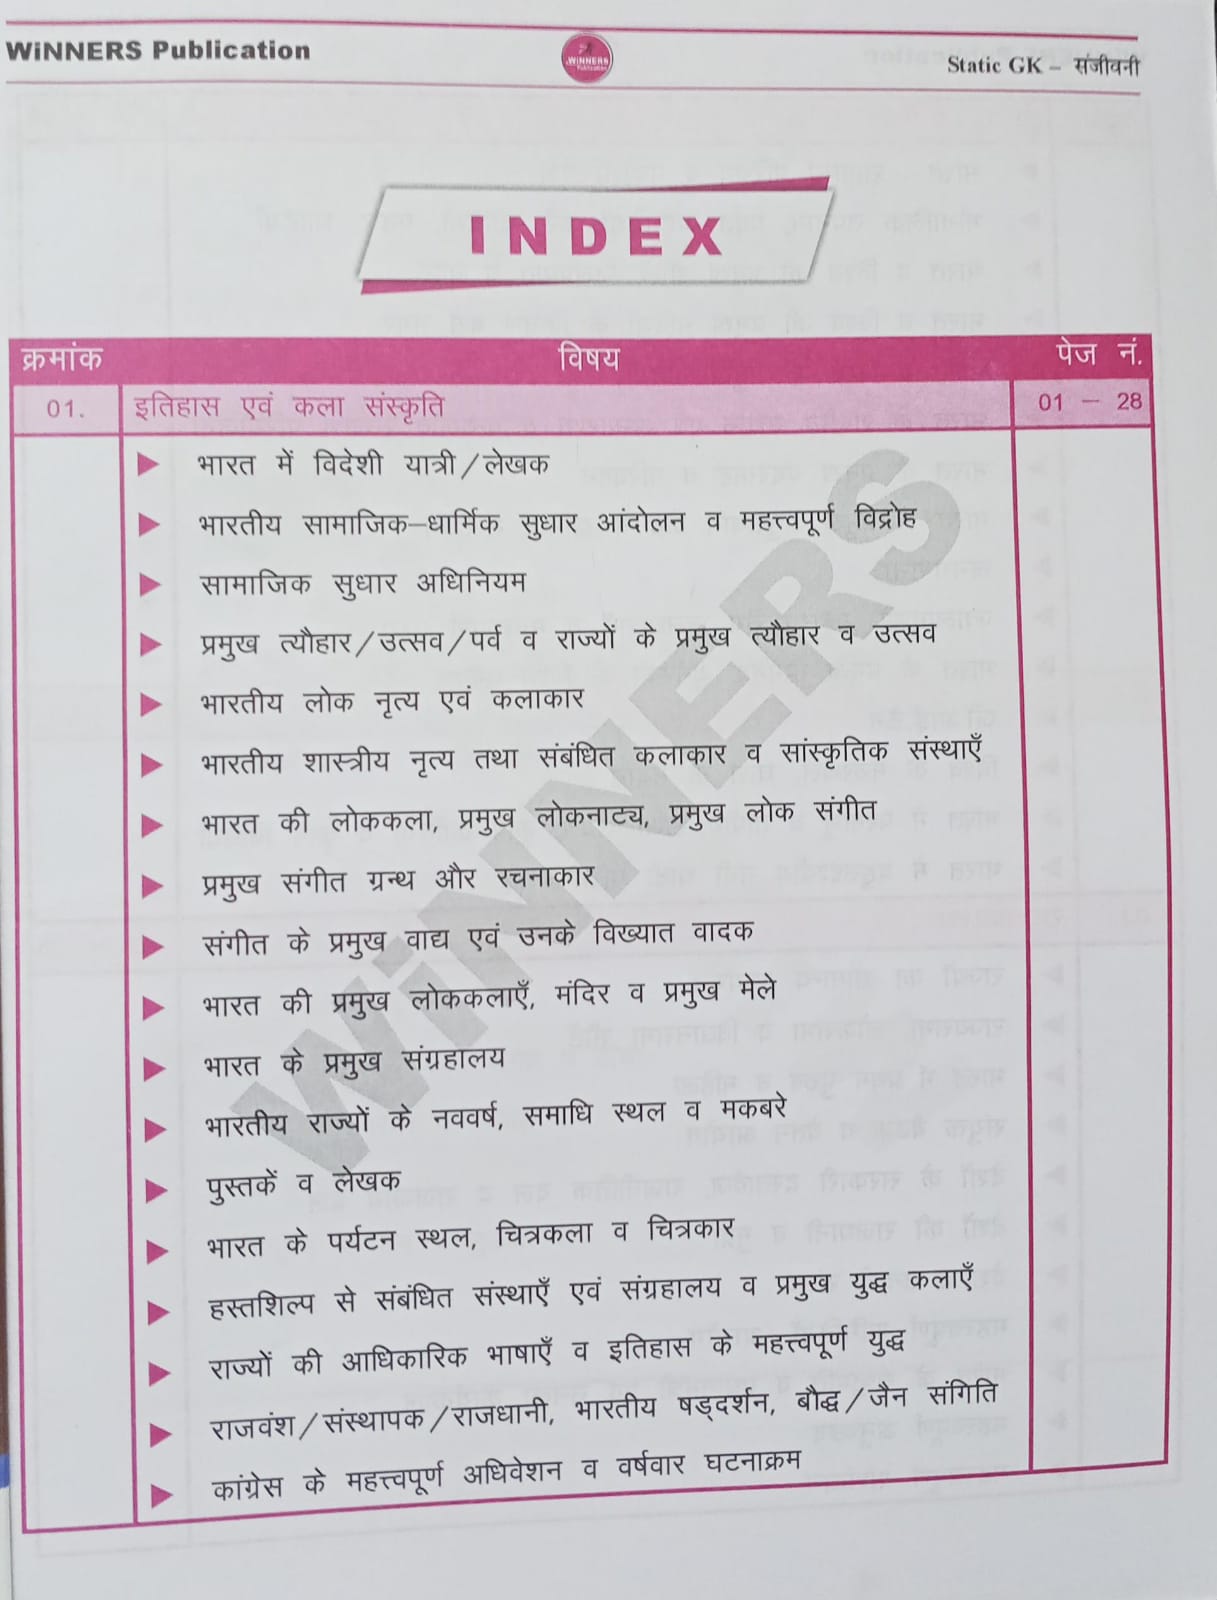 WiNNERS Publication
WiNNERS
Publication
Static GK – संजीवनी
INDEX
क्रमांक विषय पेज नं.
01. इतिहास एवं कला संस्कृति 01 – 28
भारत में विदेशी यात्री/लेखक
भारतीय सामाजिक–धार्मिक सुधार आंदोलन व महत्त्वपूर्ण विद्रोह
सामाजिक सुधार अधिनियम
प्रमुख त्यौहार/उत्सव/पर्व व राज्यों के प्रमुख त्यौहार व उत्सव
भारतीय लोक नृत्य एवं कलाकार
भारतीय शास्त्रीय नृत्य तथा संबंधित कलाकार व सांस्कृतिक संस्थाएँ
भारत की लोककला, प्रमुख लोकनाट्य, प्रमुख लोक संगीत
प्रमुख संगीत ग्रन्थ और रचनाकार
संगीत के प्रमुख वाद्य एवं उनके विख्यात वादक
भारत की प्रमुख लोककलाएँ, मंदिर व प्रमुख मेले
भारत के प्रमुख संग्रहालय
भारतीय राज्यों के नववर्ष, समाधि स्थल व मकबरे
पुस्तकें व लेखक
भारत के पर्यटन स्थल, चित्रकला व चित्रकार
हस्तशिल्प से संबंधित संस्थाएँ एवं संग्रहालय व प्रमुख युद्ध कलाएँ
राज्यों की आधिकारिक भाषाएँ व इतिहास के महत्त्वपूर्ण युद्ध
राजवंश/संस्थापक/राजधानी, भारतीय षड्दर्शन, बौद्ध/जैन संगिति
कांग्रेस के महत्त्वपूर्ण अधिवेशन व वर्षवार घटनाक्रम
WiNNERS